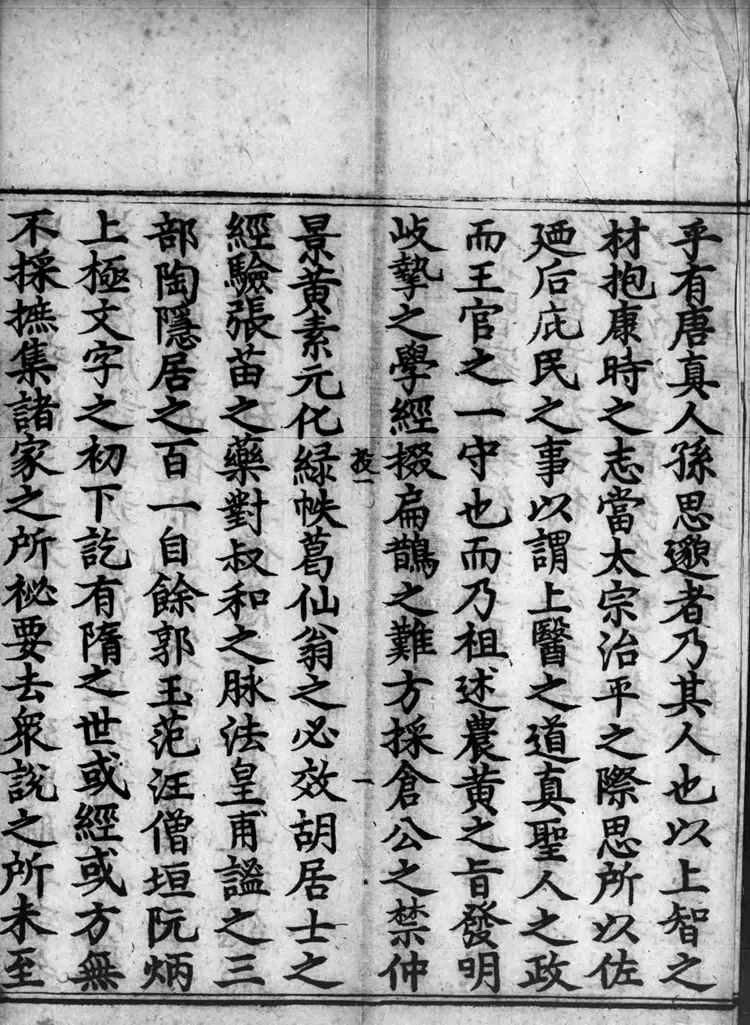 乎有唐真人孫思邈者乃其人也以上智之
材抱康時之志當太宗治平之際思所以佐
廼后庇民之事以謂上醫之道真聖人之政
而王官之一守也而乃祖述農黄之旨發明
岐摯之學經掇扁鵲之難方採倉公之禁仲
一
景黄素元化緑帙葛仙翁之必效胡居士之
經驗張苗之藥對叔和之脉法皇甫謐之三
部陶隱居之百一自餘郭玉范汪僧垣阮炳
上極文字之初下訖有隋之世或經或方無
不採摭集諸家之所祕要去衆說之所未至